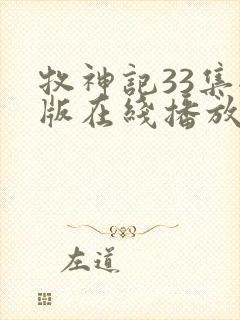 牧神記33集
版在綫播放
左道